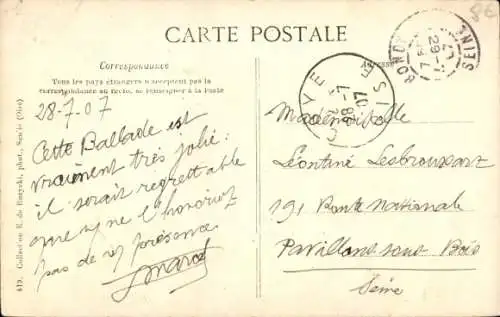 CARTE POSTALE
Correspondance
Tous les pays étrangers n'acceptent pas la
correspondance au recto, se renseigner à la Poste
28-7-07
Cette Ballade est
vraiment très jolie.
il serait regrettable
que ne l'honoriez
pas de présence
Marcel
Mademoiselle
Léontine
191 Route Nationale
Pavillons sous Bois
Seine
28-7
07
OISE
29-7
BONDY
SEINE
419. Collection R. de phot., Senlis (Oise)